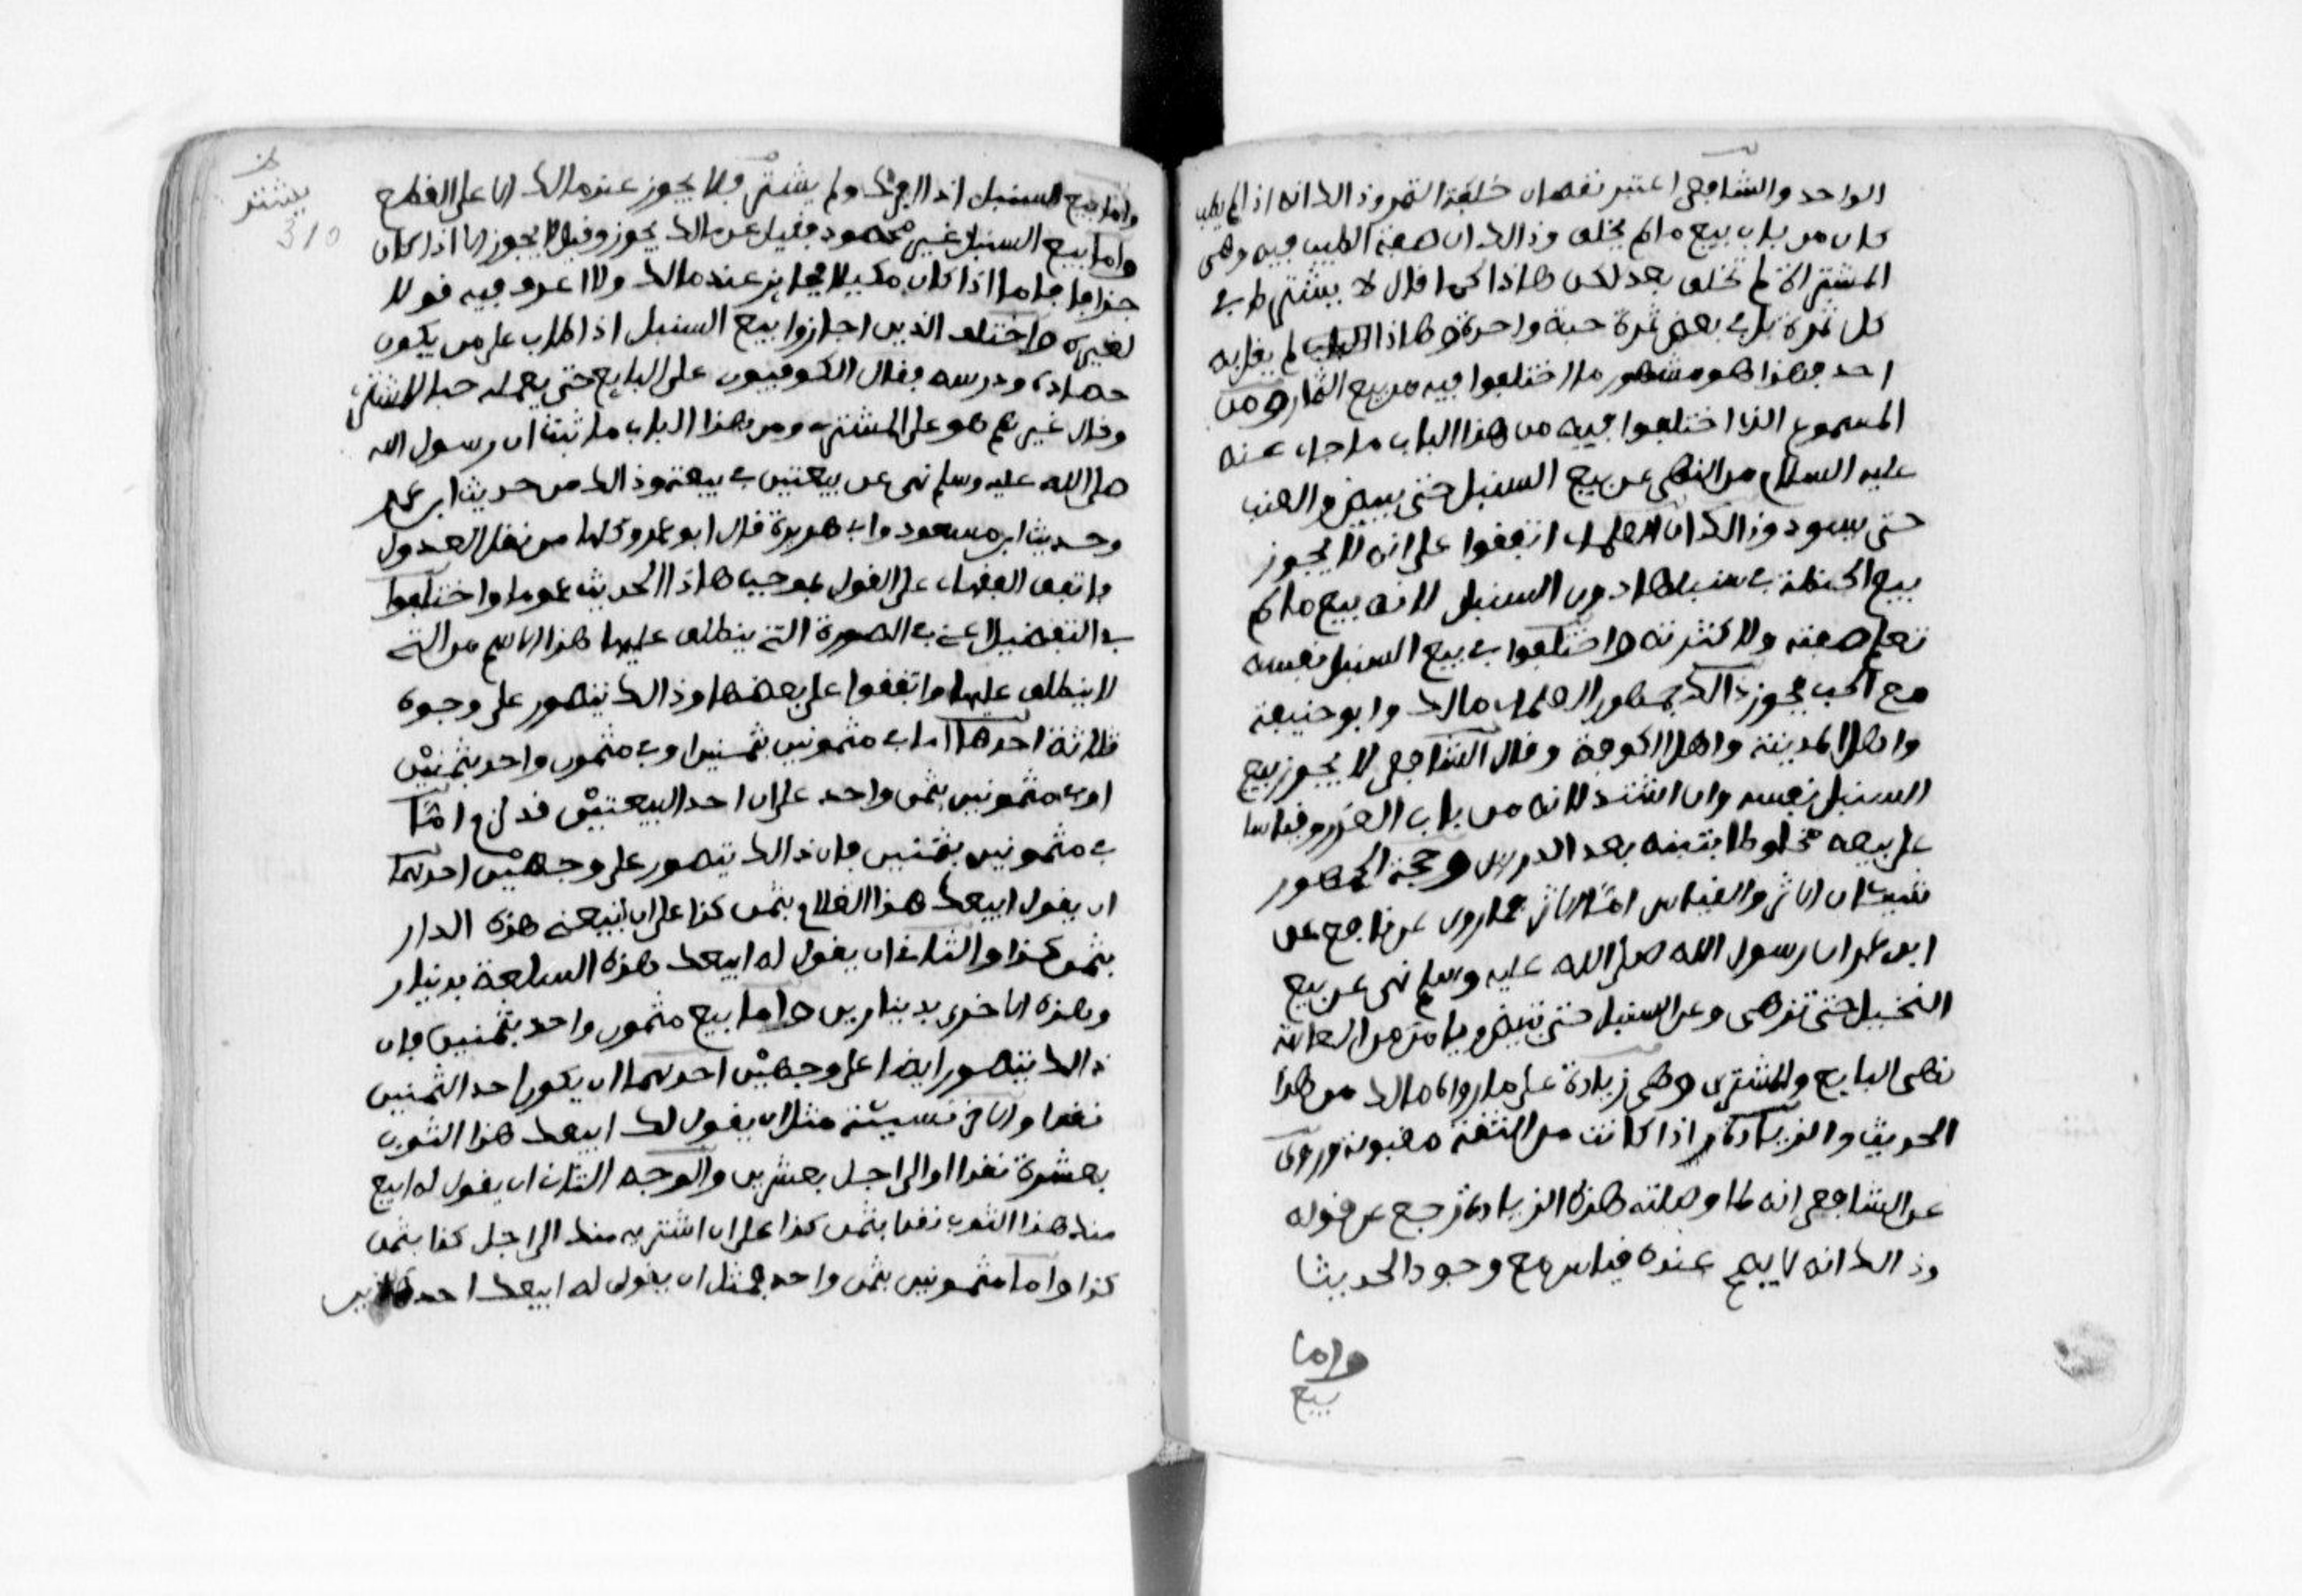 الواحد والشافعي اعتبر نقصان خلقة الثمر وذالك انه اذا لم يطب
كان من باب بيع ما لم يخلق وذالك ان صفة الطيب فيه وهي
المشتراة لم تخلق بعد لكن هاذا كما قال لا يشترط في
كل ثمرة بل في بعض ثمرة حبة واحدة وهاذا لم يقل به
احد فهذا هو مشهور ما اختلفوا فيه من بيع الثمار ومن
المسموع الذي اختلفوا فيه من هذا الباب ما جاء عنه
عليه السلام من النهى عن بيع السنبل حتى يبيض والعنب
حتى يسود وذالك ان العلماء اتفقوا على انه لا يجوز
بيع الحنطة في سنبلها دون السنبل لانه بيع ما لم
تعلم صفته ولا كثرته واختلفوا في بيع السنبل نفسه
مع الحب فجوز ذالك جمهور العلماء مالك وابو حنيفة
واهل المدينة واهل الكوفة وقال الشافعي لا يجوز بيع
السنبل نفسه وان اشتد لانه من باب الغرر وقياسا
على بيعه مخلوطا بتبنه بعد الدرس وحجة الجمهور
شيئان الاثر والقياس اما الاثر فما روى عن نافع عن
ابن عمر ان رسول الله صلى الله عليه وسلم نهى عن بيع
النخيل حتى تزهى وعن السنبل حتى تبيض ويامن من العاهة
نهى البايع والمشترى وهى زيادة على ما رواه مالك من هذا
الحديث والزيادة اذا كانت من الثقة مقبولة وروى
عن الشافعي انه لما وصلته هذه الزيادة رجع عن قوله
وذالك انه لا يصح عنده قياس مع وجود الحديث
واما
بيع
يشتر
310
واما بيع السنبل اذا افرك ولم يشتد فلا يجوز عند مالك الا على القطع
واما بيع السنبل غير محصود فقيل عن مالك يجوز وقيل لا يجوز الا اذا كان
جزافا فاما اذا كان مكيلا فجايز عند مالك ولا اعرف فيه قولا
لغيره واختلف الذين اجازوا بيع السنبل اذا طاب على من يكون
حصاده ودرسه فقال الكوفيون على البايع حتى يعمله حبا للمشتري
وقال غيرهم هو على المشترى ومن هذا الباب ما ثبت ان رسول الله
صلى الله عليه وسلم نهى عن بيعتين في بيعة وذالك من حديث ابن عمر
وحديث ابن مسعود وابي هريرة قال ابو عمر وكلها من نقل العدول
فاتفق الفقهاء على القول بموجب هاذا الحديث عموما واختلفوا
في التفصيل اعني في الصورة التي ينطلق عليها هذا الاسم من التي
لا ينطلق عليها واتفقوا على بعضها وذالك يتصور على وجوه
ثلاثة احدها اما في مثمونين بثمنين او في مثمون واحد بثمنين
او في مثمونين بثمن واحد على ان احد البيعتين قد لزم اما
في مثمونين بثمنين فان ذالك يتصور على وجهين احدهما
ان يقول ابيعك هذا الغلام بثمن كذا على ان تبيعني هذه الدار
بثمن كذا والثاني ان يقول له ابيعك هذه السلعة بدينار
وهذه الاخرى بدينارين واما بيع مثمون واحد بثمنين فان
ذالك يتصور ايضا على وجهين احدهما ان يكون احد الثمنين
نقدا والاخر نسيئة مثل ان يقول لك ابيعك هذا الثوب
بعشرة نقدا او الى اجل بعشرين والوجه الثاني ان يقول له ابيع
منك هذا الثوب نقدا بثمن كذا على ان اشتريه منك الى اجل كذا بثمن
كذا واما مثمونين بثمن واحد فمثل ان يقول له ابيعك احد